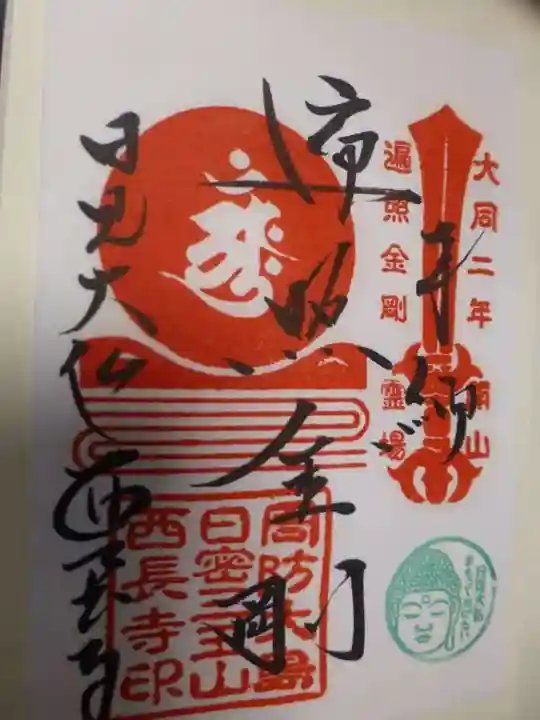 奉拝
大同二年
開山
遍照金剛
霊場
遍照金剛
日見大仏
西長寺
周防大島
日密山
西長寺印